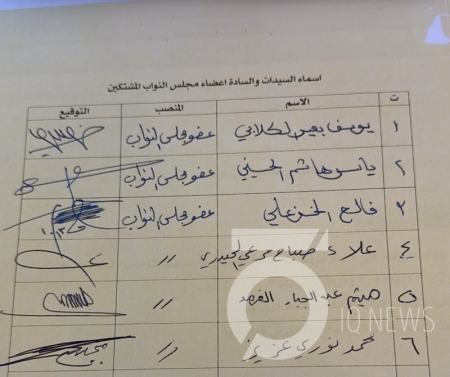 اسماء السيدات والسادة اعضاء مجلس النواب المشتكين
ت الاسم المنصب التوقيع
١ يوسف بعيو الكلابي عضو مجلس النواب
٢ ياسر هاشم الحسيني عضو مجلس النواب
٣ فالح الخزعلي عضو مجلس النواب
٤ علاء صباح الحيدري //
٥ هيثم عبد الجبار الفهد //
٦ محمد نوري عزيز //
IQ NEWS